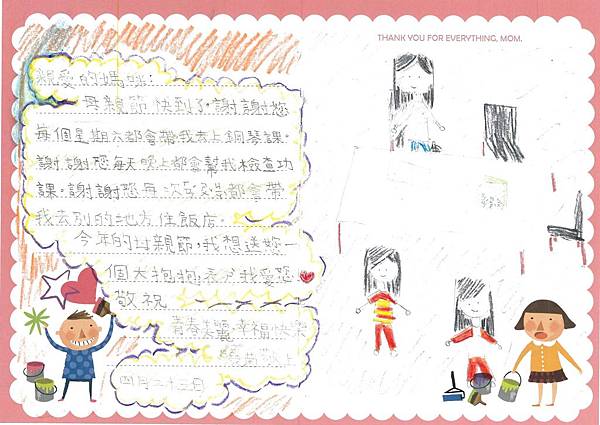 THANK YOU FOR EVERYTHING, MOM.
親愛的媽咪：
母親節快到了，謝謝您
每個星期六都會帶我去上鋼琴課。
謝謝您每天晚上都會幫我檢查功
課。謝謝您每次放假都會帶
我去別的地方住飯店。
今年的母親節，我想送您一
個大抱抱，表示我愛您
敬祝
青春美麗 幸福快樂
上
四月二十三日